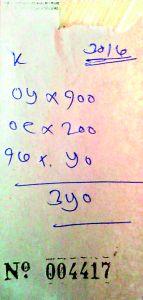 2016
K
04 x 900
08 x 200
96 x. 40
340
Nº 004417